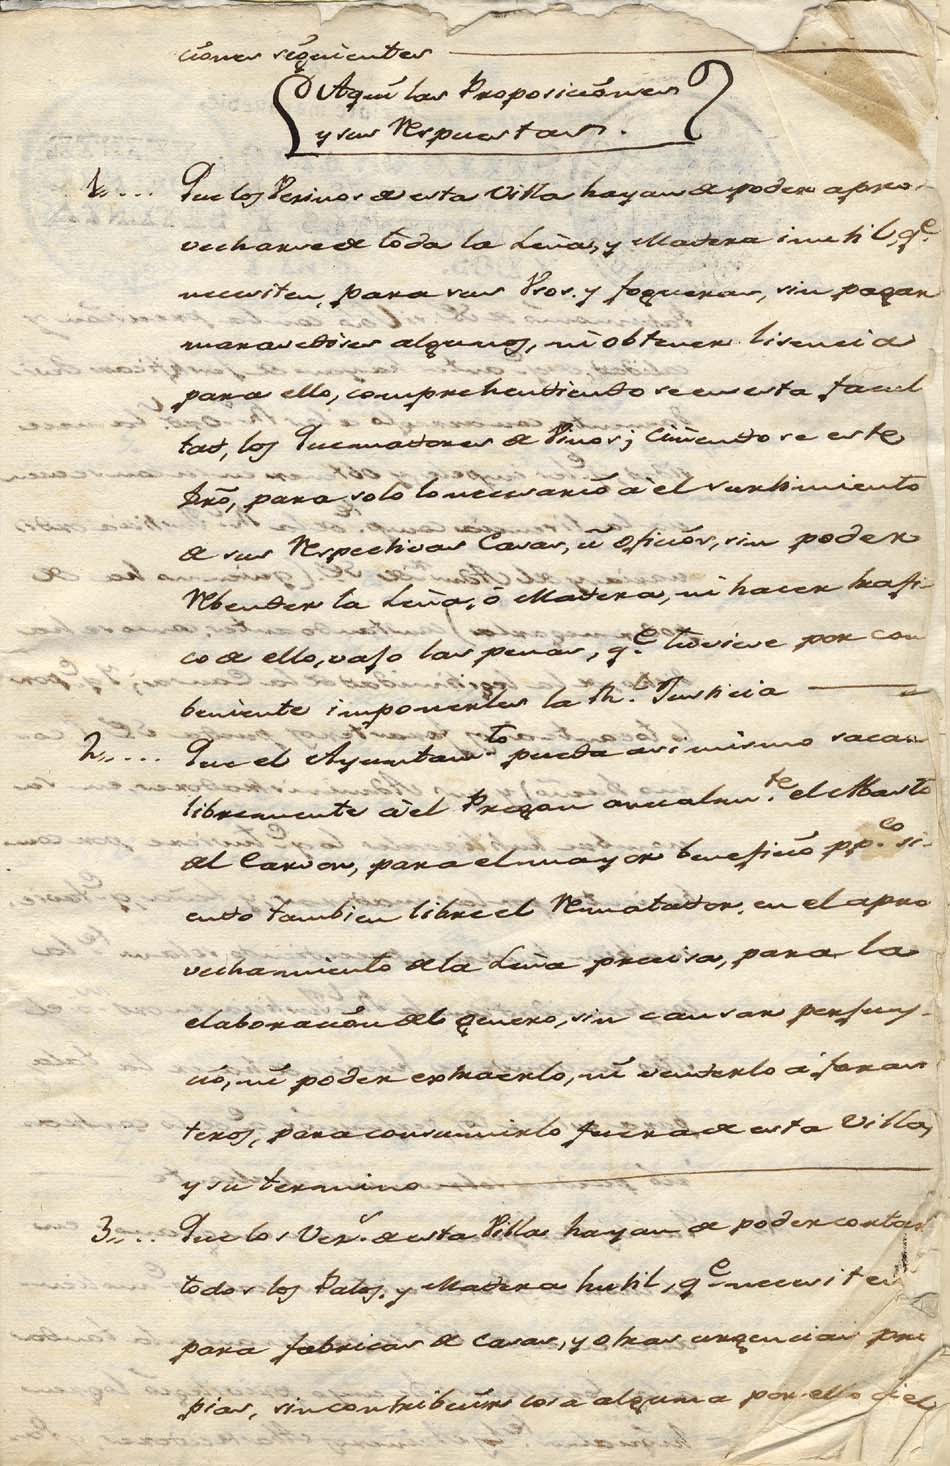 ciones siguientes
Aquí las Proposiciónes
y sus Respuestas.
1.... Que los Vesinos de esta Villa hayan de poder apro-
vecharse de toda la Leña, y Madera inutil, q.e
necesiten, para sus Usos. y fogueras, sin pagar
maravedises algunos, ni obtener lisencia
para ello, comprehendiendose en esta facul
tad, los Quemadores de Pinos; ciñendose este
dro, para solo lo necesario á el surtimiento
de sus Respectivas Casas, ú oficios, sin poder
Rebender la Leña, ó Madera, ni hacer trafi
co de ello, vajo las penas, q.e tuviese por con
beniente imponerles la R.l Justicia
2.... Que el Ayuntam.to pueda asi mismo sacar
libremente á el Pregon anualm.te el Abasto
del Carvon, para el mayor beneficio pp.co si-
endo tambien libre el Rematador, en el apro
vechamiento de la Leña precisa, para la
elaboración del genero, sin causar perjuy-
cio, ni poder extraerlo, ni venderlo á foras
teros, para consumirlo fuera de esta Villa,
y su termino
3.... Que los Vez.s de esta Villa hayan de poder cortar
todos los Palos, y Madera hutil, q.e necesiten
para fabricas de casas, y otras urgencias pro
pias, sin contribuir cosa alguna por ello á el